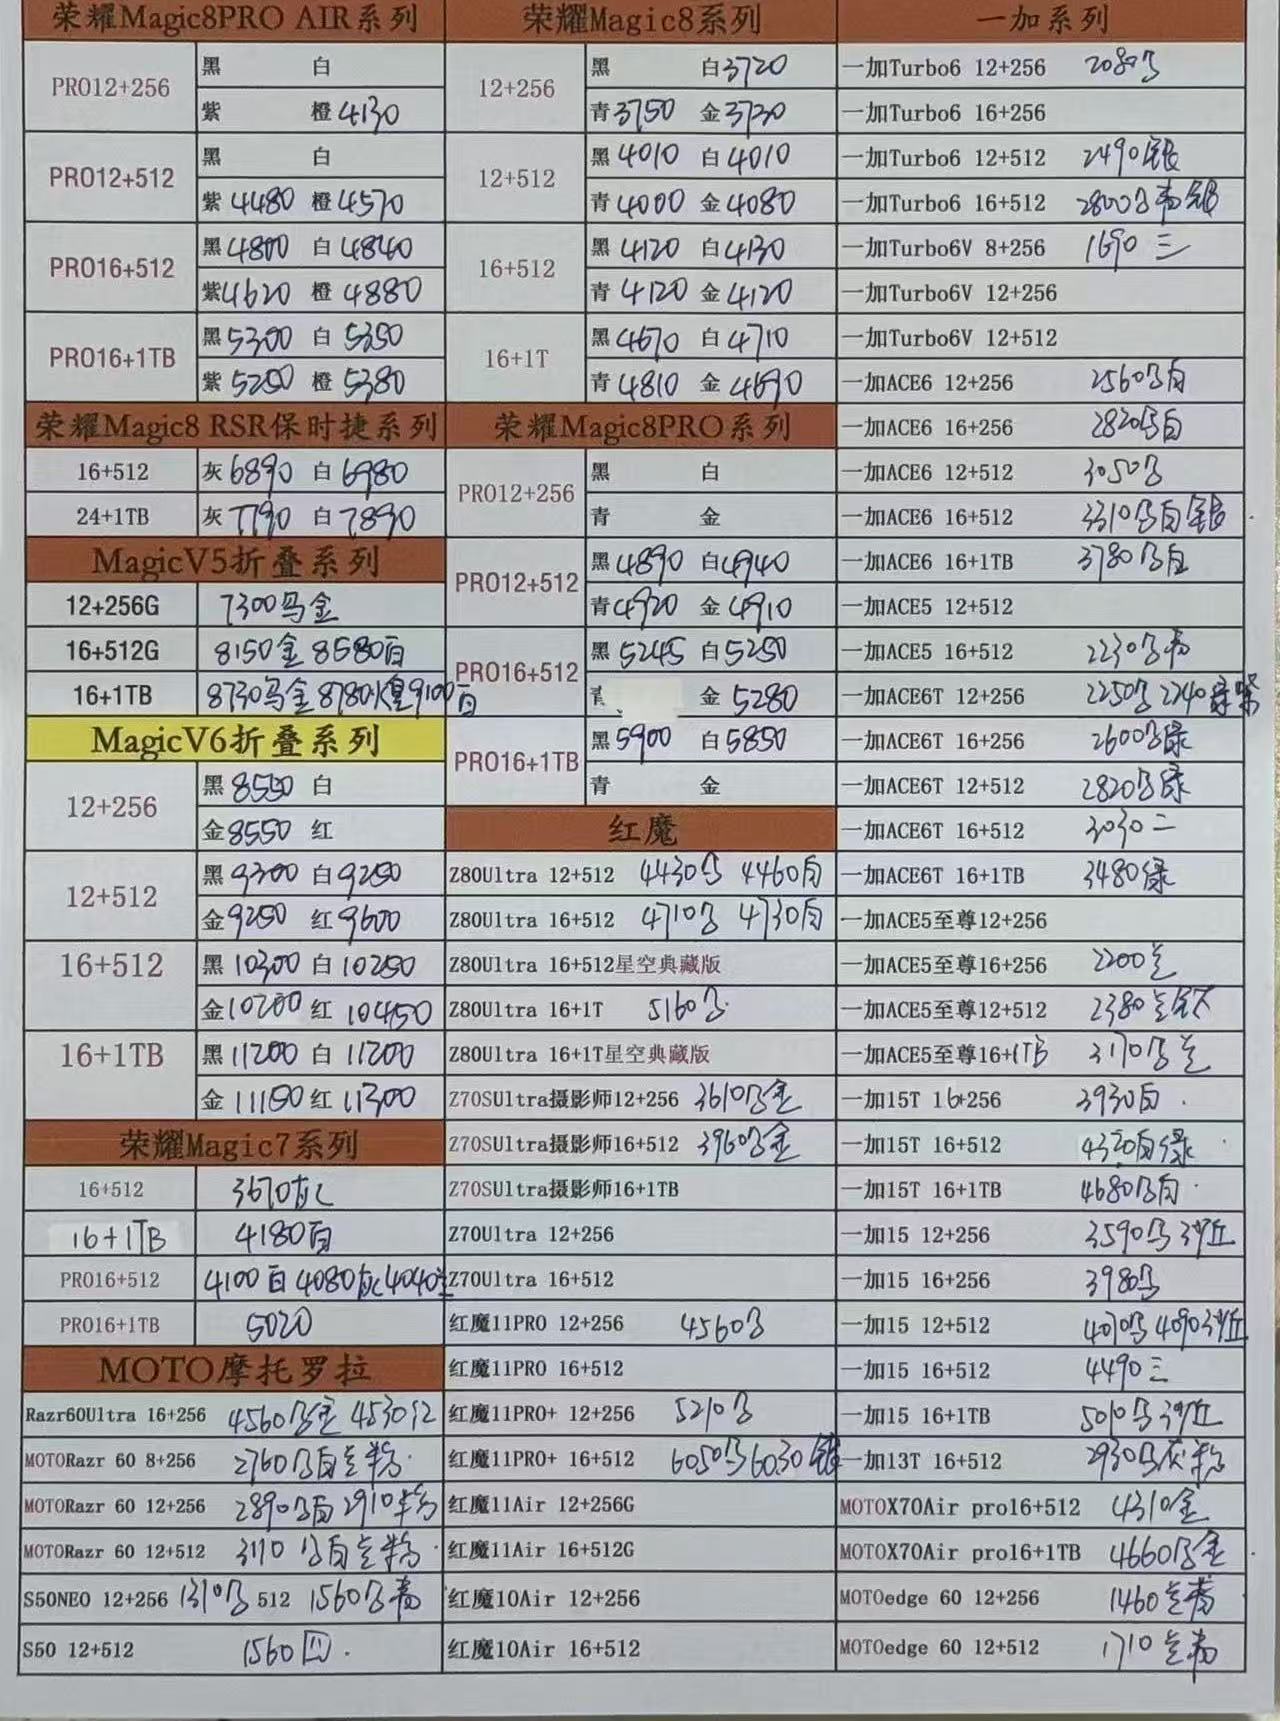 荣耀Magic8PRO AIR系列
PRO12+256
黑 白
紫 橙4130
PRO12+512
黑 白
紫4480 橙4570
PRO16+512
黑4800 白4840
紫4620 橙4880
PRO16+1TB
黑5300 白5350
紫5250 橙5380
荣耀Magic8 RSR保时捷系列
16+512 灰6890 白6980
24+1TB 灰7790 白7890
MagicV5折叠系列
12+256G 7300马金
16+512G 8150金 8580白
16+1TB 8730马金 8780 9100白
MagicV6折叠系列
12+256
黑8550 白
金8550 红
12+512
黑9300 白9250
金9250 红9600
16+512
黑10300 白10250
金10200 红10450
16+1TB
黑11200 白11200
金11150 红11300
荣耀Magic7系列
16+512 3670灰
16+1TB 4180白
PRO16+512 4100白 4080灰 4040
PRO16+1TB 5020
MOTO摩托罗拉
Razr60Ultra 16+256 4560马金 4530红
MOTORazr 60 8+256 2760马白兰粉
MOTORazr 60 12+256 2890马白 2910粉
MOTORazr 60 12+512 3110马白兰粉
S50NEO 12+256 1310马 512 1560马青
S50 12+512 1560四
荣耀Magic8系列
12+256
黑 白3720
青3750 金3730
12+512
黑4010 白4010
青4000 金4080
16+512
黑4120 白4130
青4120 金4120
16+1T
黑4670 白4710
青4810 金4690
荣耀Magic8PRO系列
PRO12+256
黑 白
青 金
PRO12+512
黑4890 白4940
青4920 金4910
PRO16+512
黑5245 白5250
金5280
PRO16+1TB
黑5900 白5850
青 金
红魔
Z80Ultra 12+512 4430马 4460白
Z80Ultra 16+512 4710马 4730白
Z80Ultra 16+512星空典藏版
Z80Ultra 16+1T 5160马
Z80Ultra 16+1T星空典藏版
Z70SUltra摄影师12+256 3610马金
Z70SUltra摄影师16+512 3960马金
Z70SUltra摄影师16+1TB
Z70Ultra 12+256
Z70Ultra 16+512
红魔11PRO 12+256 4560马
红魔11PRO 16+512
红魔11PRO+ 12+256 5210马
红魔11PRO+ 16+512 6050马 6030银
红魔11Air 12+256G
红魔11Air 16+512G
红魔10Air 12+256
红魔10Air 16+512
一加系列
一加Turbo6 12+256 2080马
一加Turbo6 16+256
一加Turbo6 12+512 2490银
一加Turbo6 16+512 2800马青银
一加Turbo6V 8+256 1690三
一加Turbo6V 12+256
一加Turbo6V 12+512
一加ACE6 12+256 2560马白
一加ACE6 16+256 2820马白
一加ACE6 12+512 3050马
一加ACE6 16+512 3310马白银
一加ACE6 16+1TB 3780马白
一加ACE5 12+512
一加ACE5 16+512 2230马青
一加ACE6T 12+256 2250马 2240绿紫
一加ACE6T 16+256 2600马绿
一加ACE6T 12+512 2820马绿
一加ACE6T 16+512 3030二
一加ACE6T 16+1TB 3480绿
一加ACE5至尊12+256
一加ACE5至尊16+256 2200兰
一加ACE5至尊12+512 2380兰钛
一加ACE5至尊16+1TB 3170马兰
一加15T 16+256 3930白
一加15T 16+512 4320白绿
一加15T 16+1TB 4680马白
一加15 12+256 3590马沙丘
一加15 16+256 3980马
一加15 12+512 4070马 4090沙丘
一加15 16+512 4490三
一加15 16+1TB 5010马沙丘
一加13T 16+512 2930马灰粉
MOTOX70Air pro16+512 4310金
MOTOX70Air pro16+1TB 4660马金
MOTOedge 60 12+256 1460兰青
MOTOedge 60 12+512 1710兰青